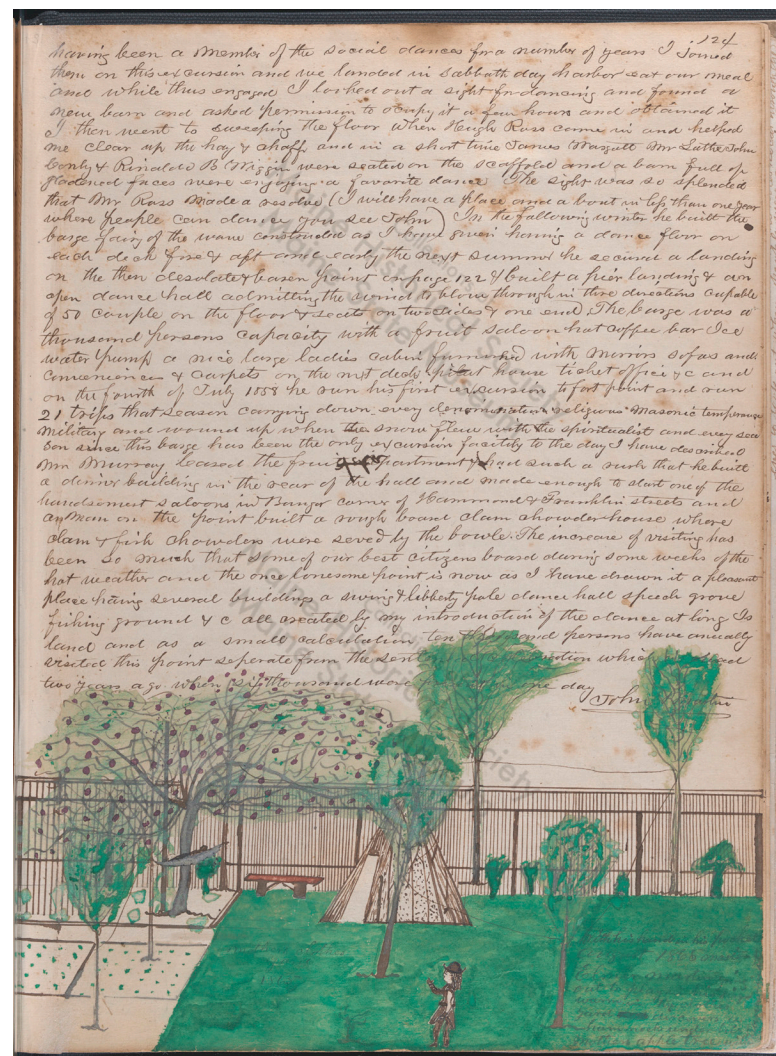 124
having been a member of the social dances for a number of years I joined
them on this excursion and we landed in Sabbath day harbor eat our meal
and while thus engaged I looked out a sight for dancing and found a
new barn and asked permission to ocupy it a few hours and obtained it
I then went to sweeping the floor when Hugh Ross come in and helped
me clear up the hay & chaff and in a short time James Mr John
& Rinaldo B Wiggin were seated on the scaffold and a barn full of
faces were enjoying a favorite dance The sight was so splended
that Mr Ross made a resolve (I will have a place and a boat in less than one year
where people can dance you see John) In the fallowing winter he built the
barge fairy of the wave constructed as I have given having a dance floor on
each deck fore & aft and early the next summer he secured a landing
on the then desolate & baren point on page 122 & built a pier landing & an
open dance hall admitting the wind to blow through in thre directions capable
of 50 couple on the floor & seats on two sides & one end The barge was a
thousand persons capacity with a fruit saloon hat coffee bar Ice
water pump a nice large ladies cabin furnished with mirrors sofas and
conveniences & carpets on the deck pilot house ticket office & c and
on the fourth of July 1858 he run his first excursion to fort point and run
21 trips that season carrying down every denomination religious masonic temperance
military and wound up when the snow flew with the spiritualist and every sea
son since this barge has been the only excursion facility to the day I have described
Mr Murray leased the fruit apartment & had such a rush that he built
a dinner building in the rear of the hall and made enough to start one of the
handsomest saloons in Bangor corner of Hammond & Franklin streets and
an man on the point built a rough board clam chowder house where
clam & fish chowders were seved by the bowle. The increase of visiting has
been so much that some of our best citizens board during some weeks of the
hot weather and the once lonesome point is now as I have drawn it a pleasant
place having several buildings a swing & libberty pole dance hall speech grove
fishing ground & c all created by my introduction of the dance at long Is
land and as a small calculation ten persons have anually
visited this point seperate from the
two years ago when six thousand were day
John
Maine Historical Society
Maine Historical Society